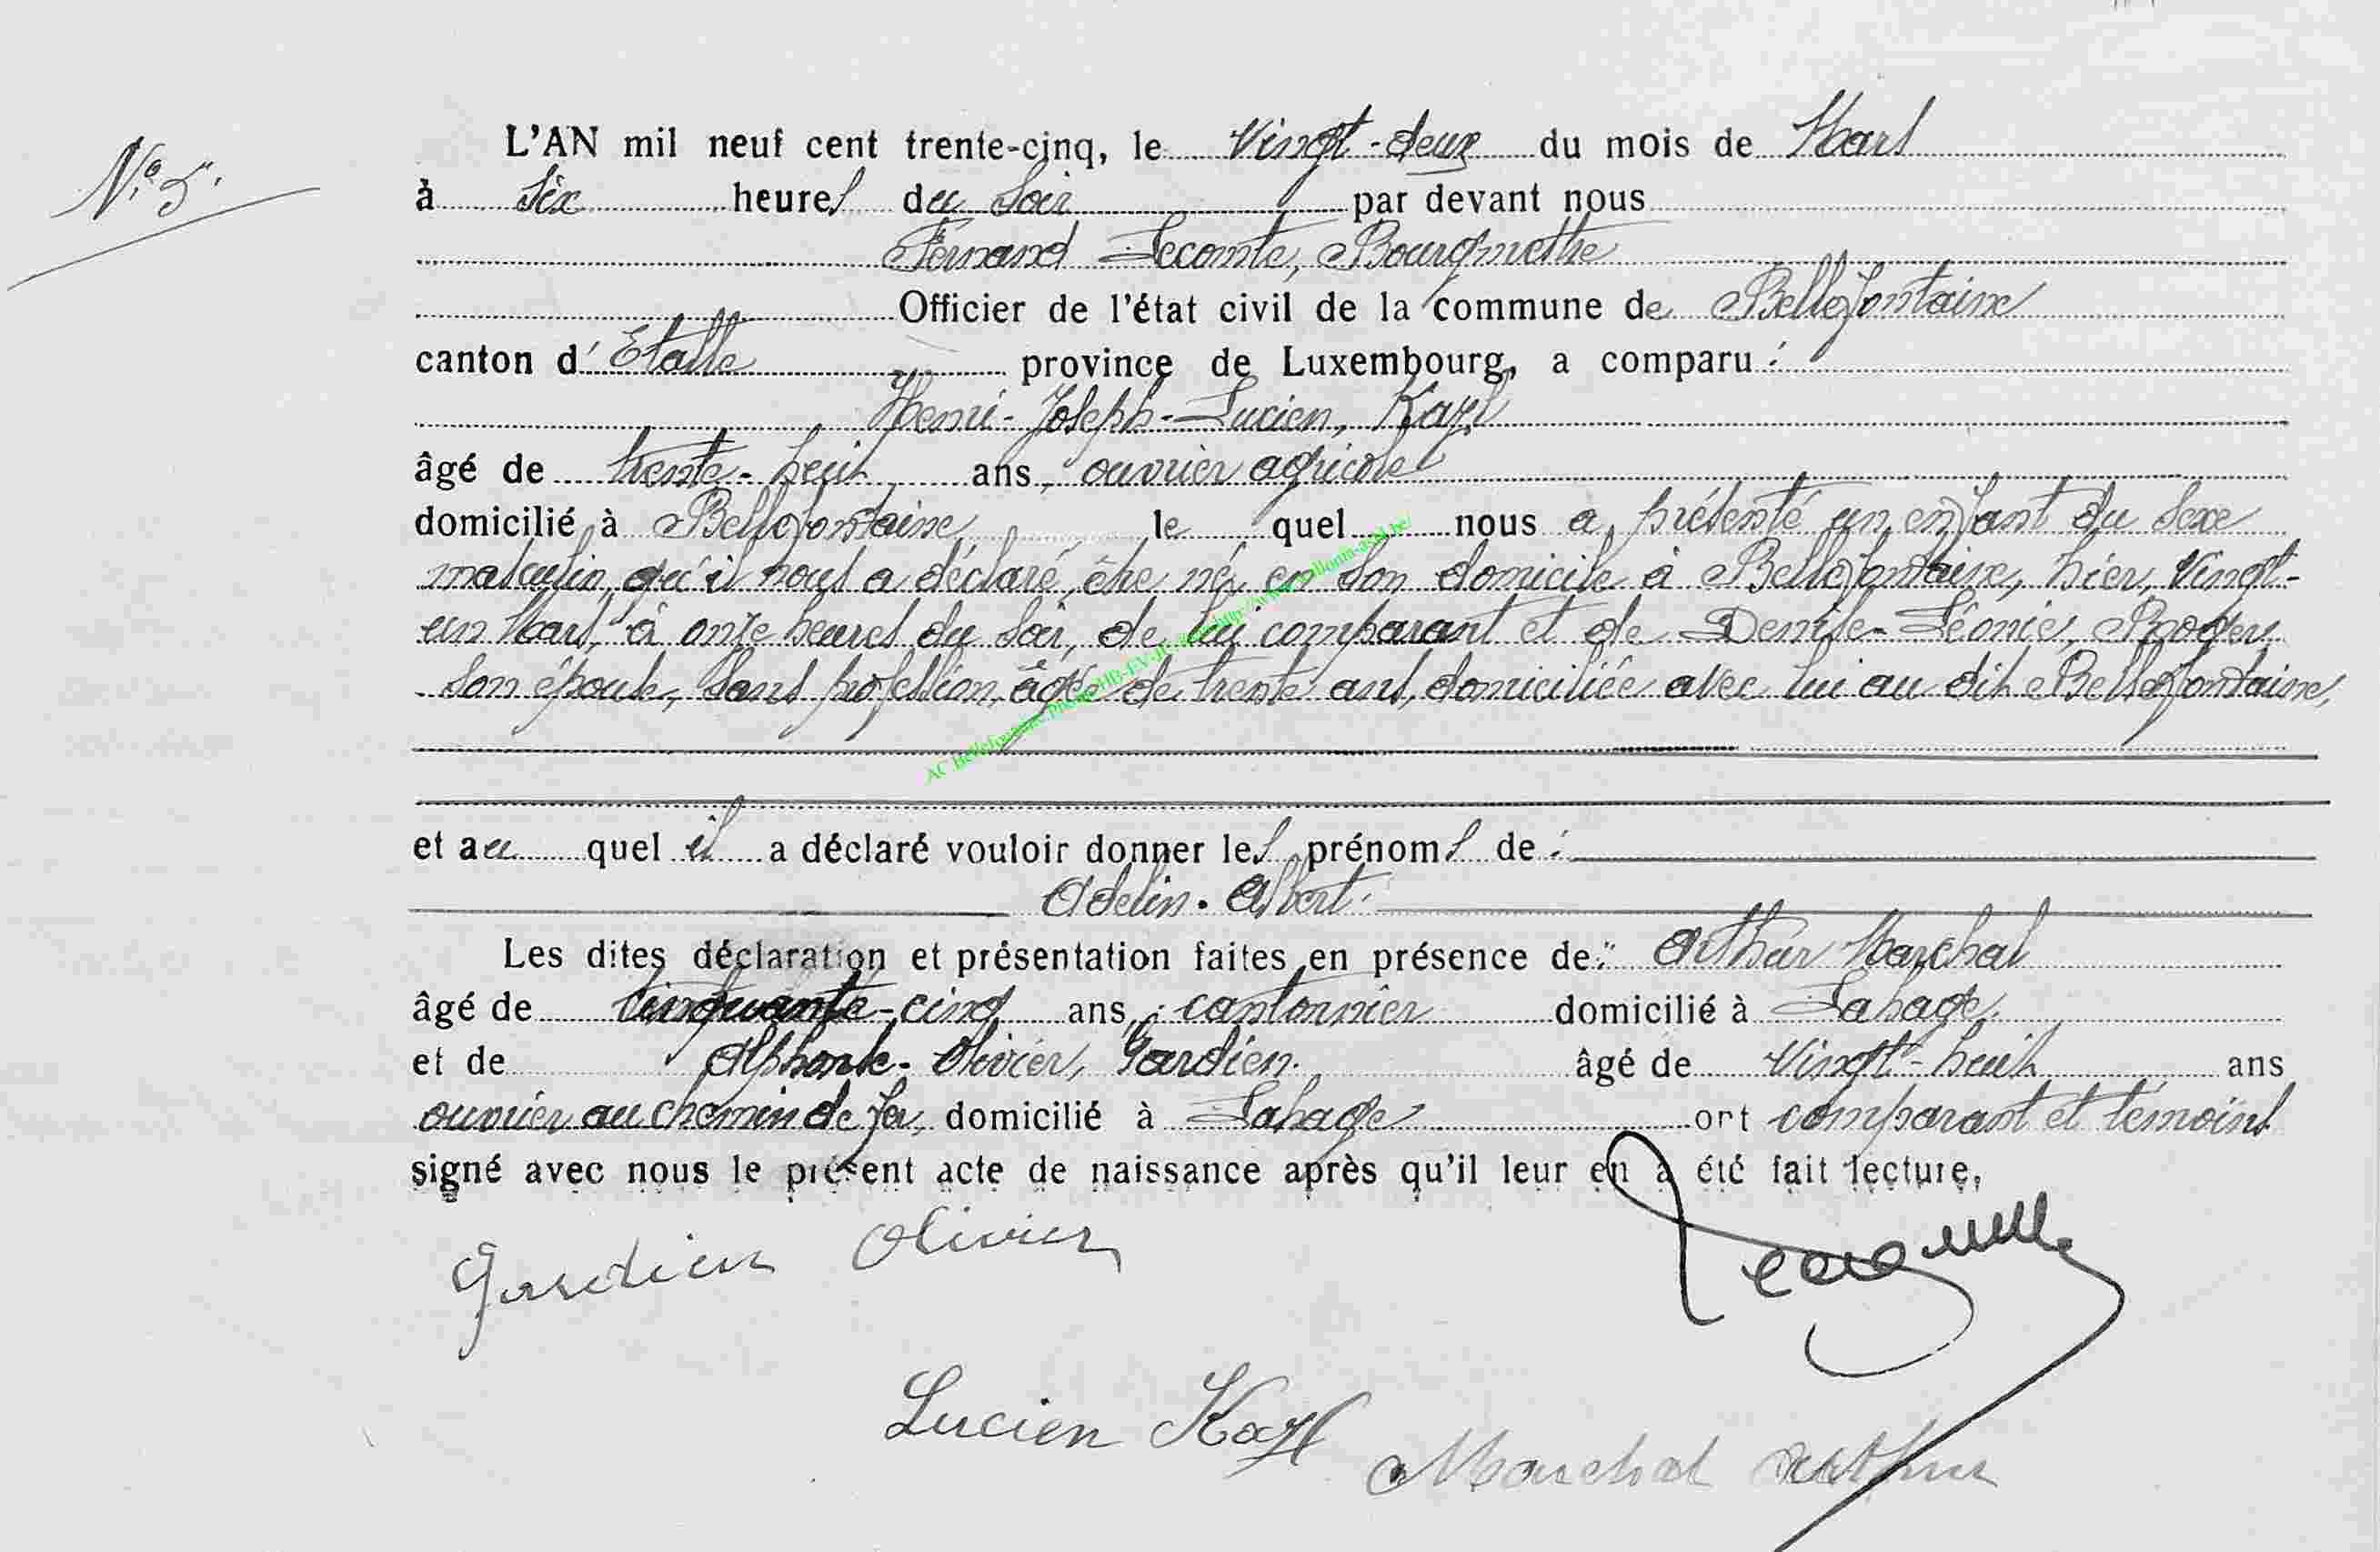 N° 5.
L'AN mil neuf cent trente-cinq, le Vingt-deux du mois de Mars
à six heures du soir par devant nous
Fernand Lecomte, Bourgmestre
Officier de l'état civil de la commune de Bellefontaine
canton d'Etalle province de Luxembourg, a comparu :
Henri-Joseph-Lucien, Kazl
âgé de trente-huit ans, ouvrier agricole
domicilié à Bellefontaine le quel nous a présenté un enfant du sexe
masculin, qu'il nous a déclaré, être né, en son domicile à Bellefontaine, hier, Vingt-
un Mars, à onze heures du soir, de lui comparant et de Denise-Léonie,
son épouse, sans profession, âgée de trente ans, domiciliée avec lui au dit Bellefontaine,
et au quel il a déclaré vouloir donner les prénoms de :
Adelin. Albert.
Les dites déclaration et présentation faites en présence de : Arthur Marchal
âgé de cinquante-cinq ans, cantonnier domicilié à Lahage
et de Alphonse-Olivier, Gardien. âgé de Vingt-huit ans
ouvrier au chemin de fer, domicilié à Lahage ont comparant et témoins
signé avec nous le présent acte de naissance après qu'il leur en a été fait lecture.
Gardien Olivier
Lucien Kazl
Marchal Arthur